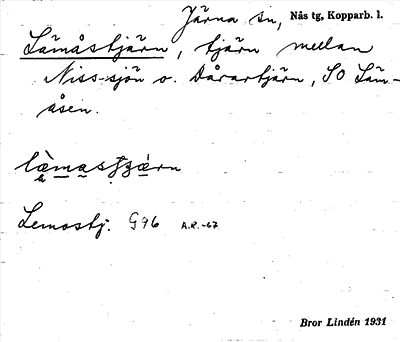 Järna sn, Nås tg, Kopparb. l.
Lämåstjärn, tjärn mellan
Niss-sjön o. Dårartjärn, SO Läm-
åsen.
Lemostj. G96 A.R.-67
Bror Lindén 1931